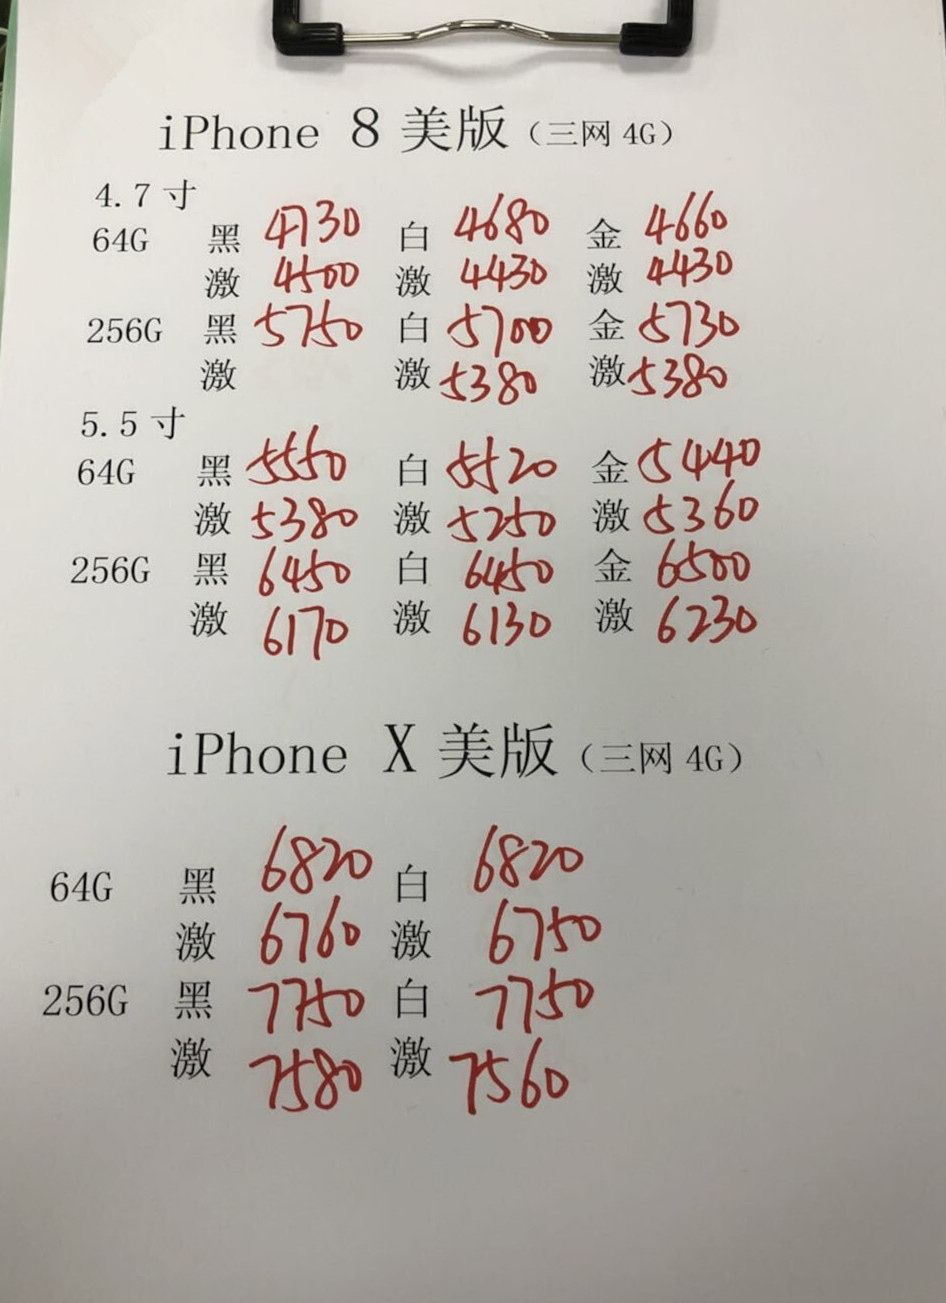 iPhone 8 美版（三网 4G）
4.7 寸
64G 黑 4730 白 4680 金 4660
激 4500 激 4430 激 4430
256G 黑 5750 白 5700 金 5730
激 激 5380 激 5380
5.5 寸
64G 黑 5550 白 5520 金 5440
激 5380 激 5250 激 5360
256G 黑 6450 白 6450 金 6500
激 6170 激 6130 激 6230
iPhone X 美版（三网 4G）
64G 黑 6820 白 6820
激 6760 激 6750
256G 黑 7750 白 7750
激 7580 激 7560